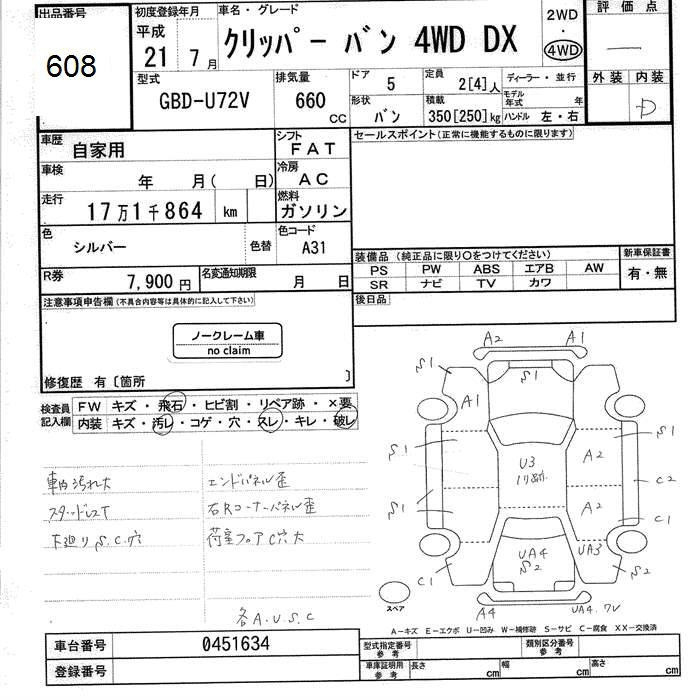 出品番号
608
初度登録年月
平成
21 7月
車名・グレード
クリッパー バン 4WD DX
2WD
・
4WD
評価点
―
外装 内装
D
型式
GBD-U72V
排気量
660
CC
ドア
5
定員
2[4]人
ディーラー・並行
形状
バン
積載
350[250]kg
モデル年式 年
ハンドル 左・右
車歴
自家用
シフト
FAT
セールスポイント(正常に機能するものに限ります)
車検
年 月( 日)
冷房
AC
走行
17万1千864 km
燃料
ガソリン
色
シルバー
色替
色コード
A31
装備品 (純正品に限り○をつけてください)
PS PW ABS エアB AW
SR ナビ TV カワ
新車保証書
有・無
R券
7,900円
名変通知期限
月 日
後日品
注意事項申告欄(不具合内容等は具体的に記入して下さい)
ノークレーム車
no claim
修復歴 有〔箇所 〕
検査員
記入欄
FW キズ・飛石・ヒビ割・リペア跡・×要
内装 キズ・汚レ・コゲ・穴・スレ・キレ・破レ
車内汚れ大
スタッドレスT
下廻りS.C.穴
エンドパネル歪
右Rコーナーパネル歪
荷室フロアC穴大
各A.U.S.C
A2 A1
S1 S1
A1
S1 A2 S1
U3
C2
S1 A2 C1
UA4 UA3
S2
C1 S2
スペア
A4 UA4.7V
A-キズ E-エクボ U-凹み W-補修跡 S-サビ C-腐食 XX-交換済
車台番号
0451634
登録番号
型式指定番号
参考
類別区分番号
参考
車庫証明用
参考
長さ cm 幅 cm 高さ cm